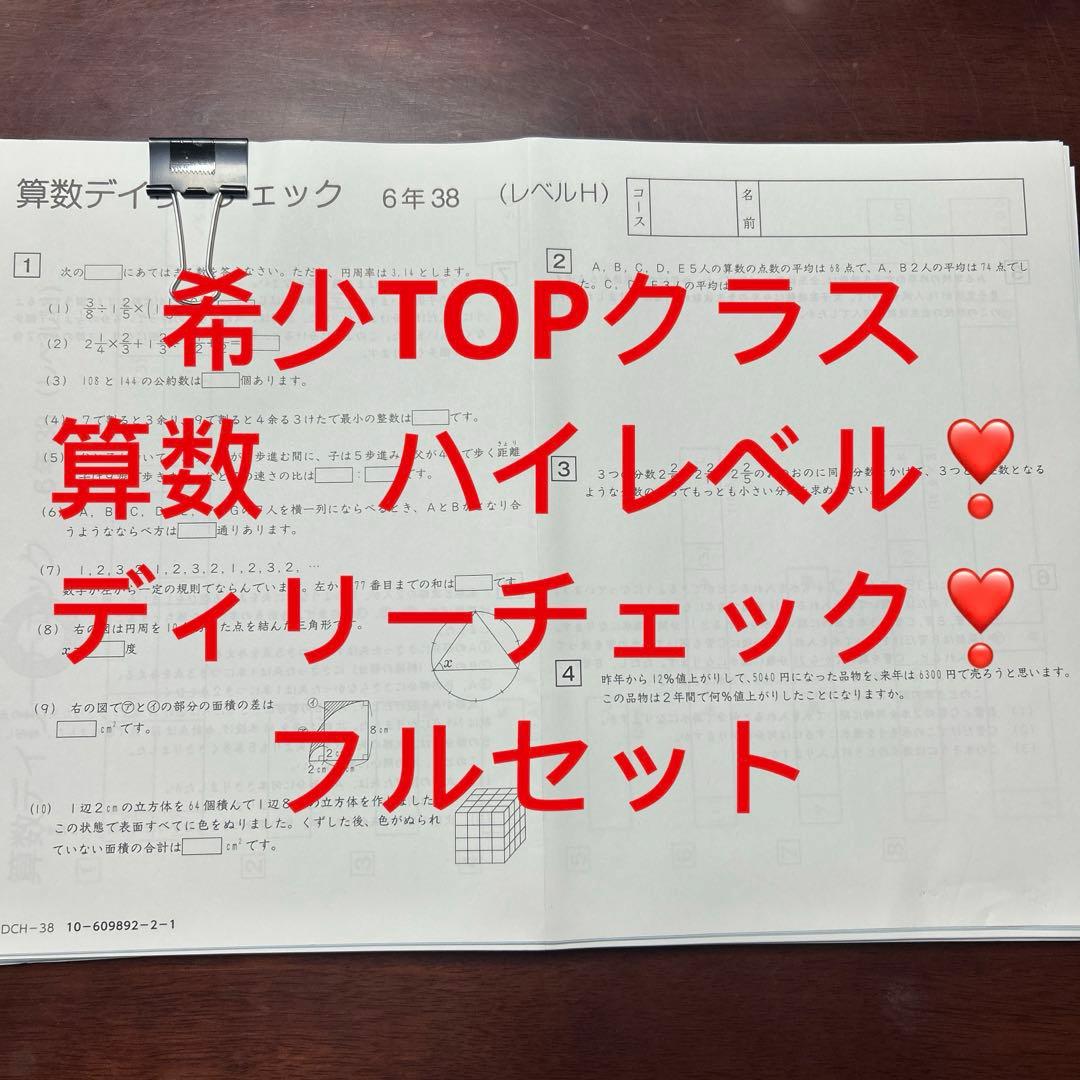 算数デイ ェック 6年38 (レベルH) コース 名前
希少TOPクラス
算数 ハイレベル❣
ディリーチェック❣
フルセット
1 次の□にあてはま 数を答 なさい。ただ 、円周率は3.14とします。
(1) 3/8÷1 2/5×(1
(2) 2 1/4×2/3+1
(3) 108と144の公約数は□個あります。
(4) 7で割ると3余り、9で割ると4余る3けたで最小の整数は□です。
(5) 歩進む間に、子は5歩進み 父が4 で歩く距離
の速さの比は□:□です。
(6) A, B, C, D 人を横一列にならべるとき、AとBが となり合
うようなならべ方は□通りあります。
(7) 1, 2, 3, 2, 1, 2, 3, 2, 1, 2, 3, 2, …
数字が左から一定の規則でならんでいま 。左か 77番目までの和は□です
(8) 右の図は円周を10 た点を結んだ三角形です。
x □度
x
(9) 右の図で㋐と㋑の部分の面積の差は
□cm²です。
㋑
8cm
2cm
(10) 1辺2cmの立方体を64個積んで1辺8 の立方体を作りました
この状態で表面すべてに色をぬりました。くずした後、色がぬられ
ていない面積の合計は□cm²です。
2 A, B, C, D, E5人の算数の点数の平均は68点で、A, B2人の平均は74点でし
た。C, D, E3人の平均は
3 3つの分数2 2 2 2/5の おのおのに同 分数をかけ 、3つと 整数となる
ような分数の もっとも小さい分 求め さい。
4 昨年から12%値上がりして、5040円になった品物を、来年は6300円で売ろうと思います。
この品物は2年間で何%値上がりしたことになりますか。
DCH-38 10-609892-2-1